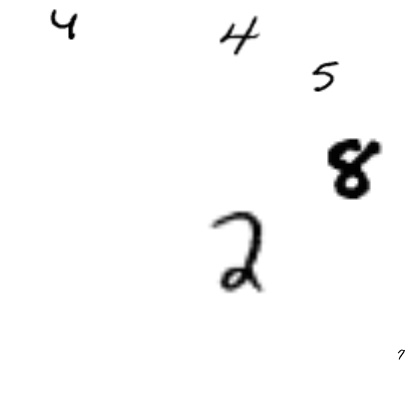 4 4
5
8
2
7